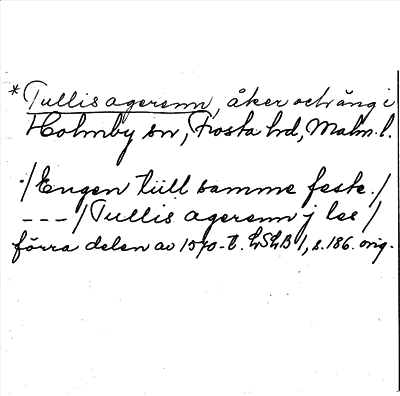 * Tullis agerenn, åker och äng i
Holmby sn, Frosta hd, Malm. l.
·/Engen tiill samme feste./
---/Tullis agerenn j les/
förra delen av 1570-t. LSLB 1, s. 186. orig.